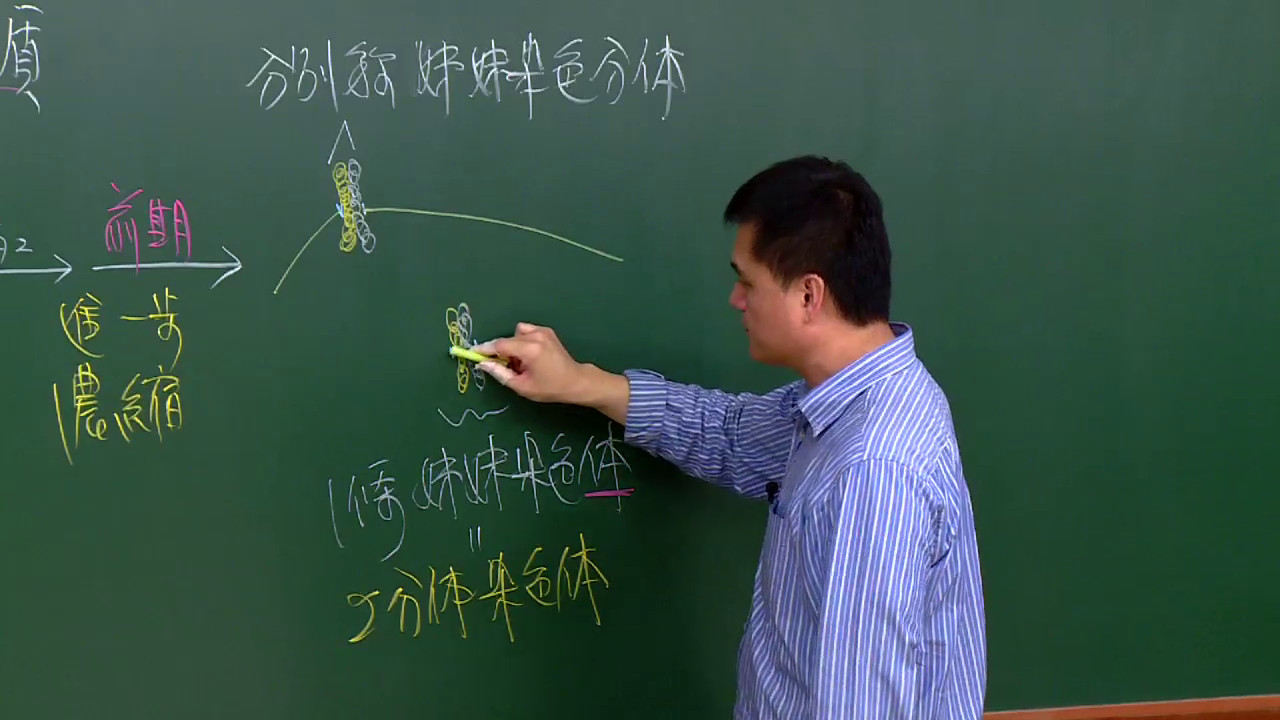 質
分別稱 姊妹染色分体
前期
2
進一步
濃縮
1條姊妹染色体
=
2分体染色体